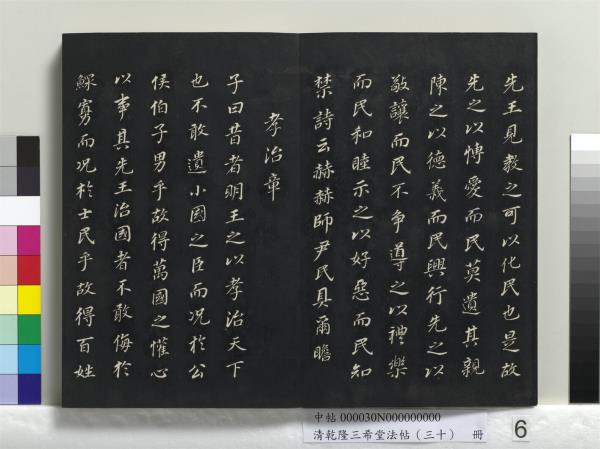 先王見教之可以化民也是故
先之以博愛而民莫遺其親
陳之以德義而民興行先之以
敬讓而民不争導之以禮樂
而民和睦示之以好惡而民知
禁詩云赫赫師尹民具爾瞻
孝治章
子曰昔者明王之以孝治天下
也不敢遺小國之臣而況於公
侯伯子男乎故得萬國之懽心
以事其先王治國者不敢侮於
鰥寡而況於士民乎故得百姓
中帖 000030N000000000
清乾隆三希堂法帖（三十） 冊
6